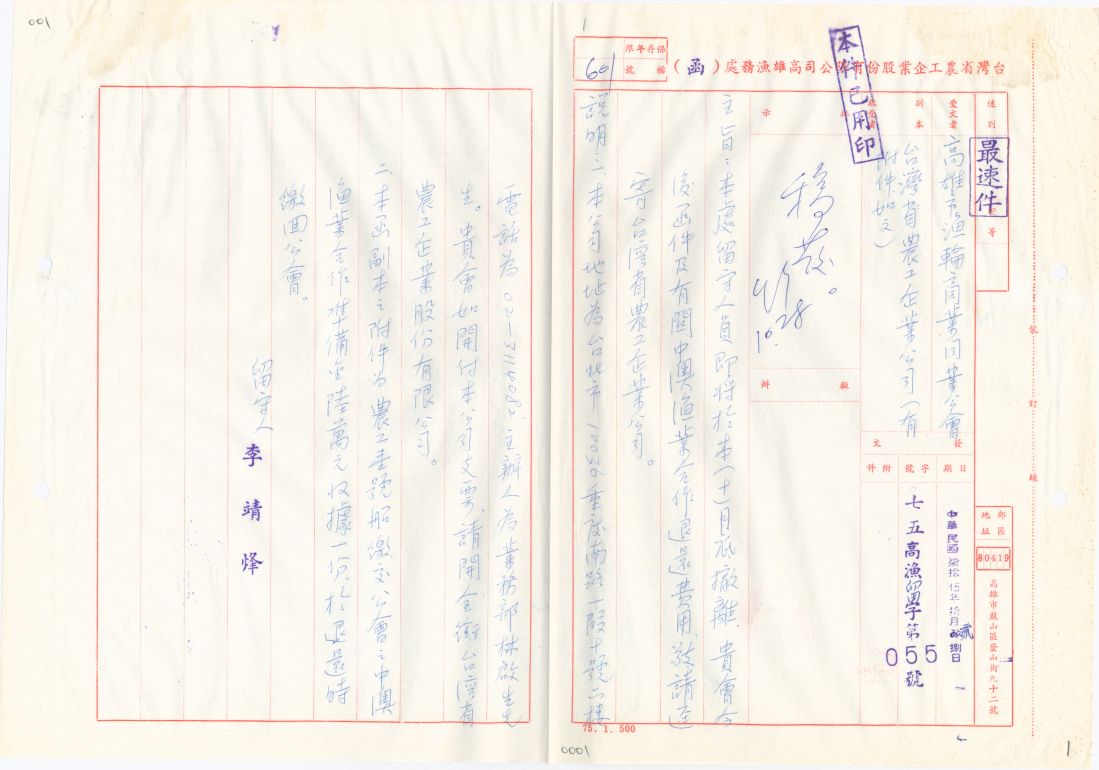 001
1
保存年限
檔號
601
台灣省農工企業股份有限公司高雄漁務處（函）
本件已用印
速別
最速件
受文者
高雄市漁輪商業同業公會
副本
收受者
台灣省農工企業公司（有
附件如文）
批示
稿發。
10.28
擬辦
發文
日期
字號
附件
中華民國柒拾伍年拾月貳捌日
七五高漁留字第
055
號
郵區
地址
80419
高雄市鼓山區登山街九十二號
裝
訂
線
主旨：本處留守人員即將於本（十）月底撤離，貴會今
後函件及有關中澳漁業合作退還費用，敬請逕
寄台灣省農工企業公司。
說明：一、本公司地址為台北市10036重慶南路一段十號六樓
電話為02-3114008，主辦人為業務部林啟生先
生。貴會如開付本公司支票，請開全銜台灣省
農工企業股份有限公司。
二、本函副本之附件為農工壹號船繳交公會之中澳
漁業合作準備金陸萬元收據一份，於退還時
繳回公會。
留守人
李靖烽
75.1.500
0001
1